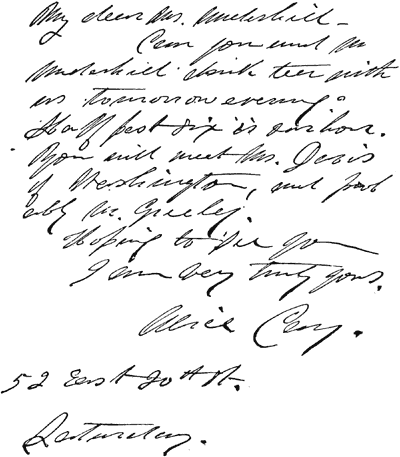 My dear Mrs. Underhill—
Can you and Mr
Underhill drink tea with
us tomorrow evening?
Half past six is our hour.
You will meet Mrs. Davis
of Washington, and prob
ably Mr. Greeley.
Hoping to see you
I am very truly yours.
Alice Cary.
52 East 20th St.
Saturday.